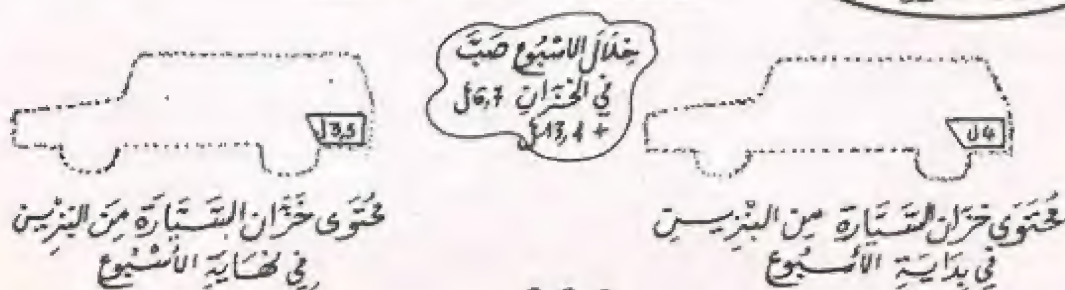 ل4
مُحْتَوَى خَزَّانِ السَّيَّارَةِ مِنَ البَنْزِينِ
فِي بِدَايَةِ الأُسْبُوعِ
خِلَالَ الأُسْبُوعِ صَبَّ
فِي الخَزَّانِ 6,7ل
+ 13,4ل
ل3,5
مُحْتَوَى خَزَّانِ السَّيَّارَةِ مِنَ البَنْزِينِ
فِي نِهَايَةِ الأُسْبُوعِ